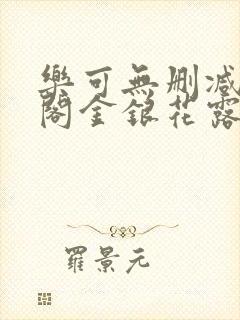 樂可無刪減
閣金銀花露
羅景元